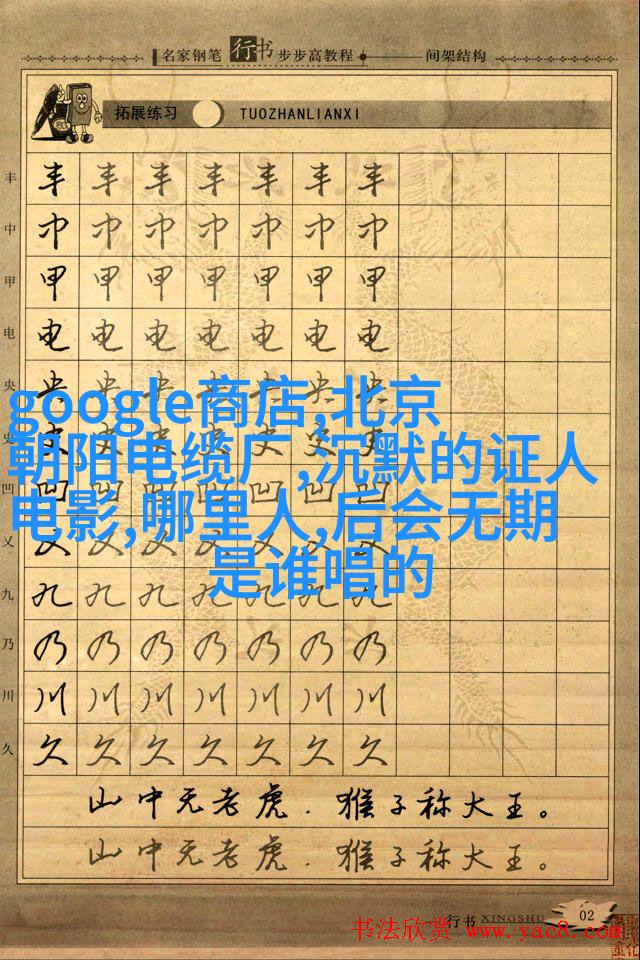 名家钢笔行书步步高教程 间架结构
拓展练习 TUOZHANLIANXI
丰 丰 丰 丰 丰 丰 丰 丰
中 中 中 中 中 中 中 中
甲 甲 甲 甲 甲 甲 甲 甲
电 电 电 电 电 电 电 电
央 央 央 央 央 央 央 央
google商店,北京
朝阳电缆厂,沉默的证人
电影,哪里人,后会无期
是谁唱的
史 史 史 史 史 史 史 史
凹 凹 凹 凹 凹 凹 凹 凹
乂 乂 乂 乂 乂 乂 乂 乂
九 九 九 九 九 九 九 九
乃 乃 乃 乃 乃 乃 乃 乃
川 川 川 川 川 川 川 川
久 久 久 久 久 久 久 久
山中无老虎.猴子称大王。
山中无老虎.猴子称大王。
行书 XINGSHU 02
书法欣赏 www.yac8.com